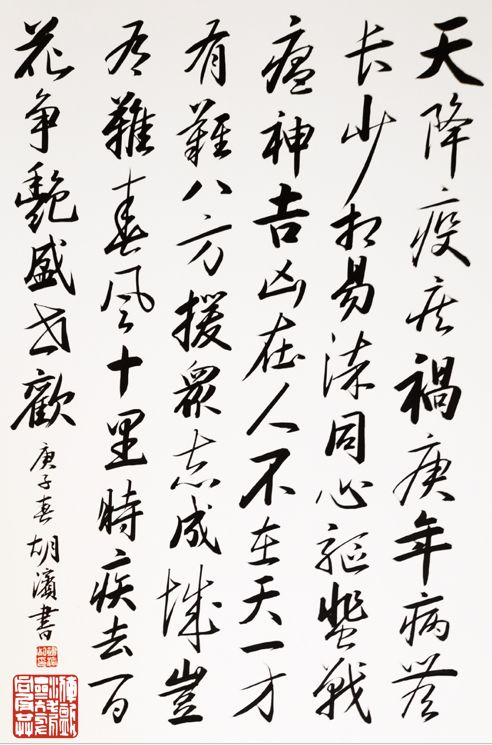 天降疫疾禍庚年病
长少相易染同心驅蜚戰
瘟神吉凶在人不在天一方
有難八方援眾志成城豈
為難春風十里時疾去百
花争艷盛世歡
庚子春胡濱書